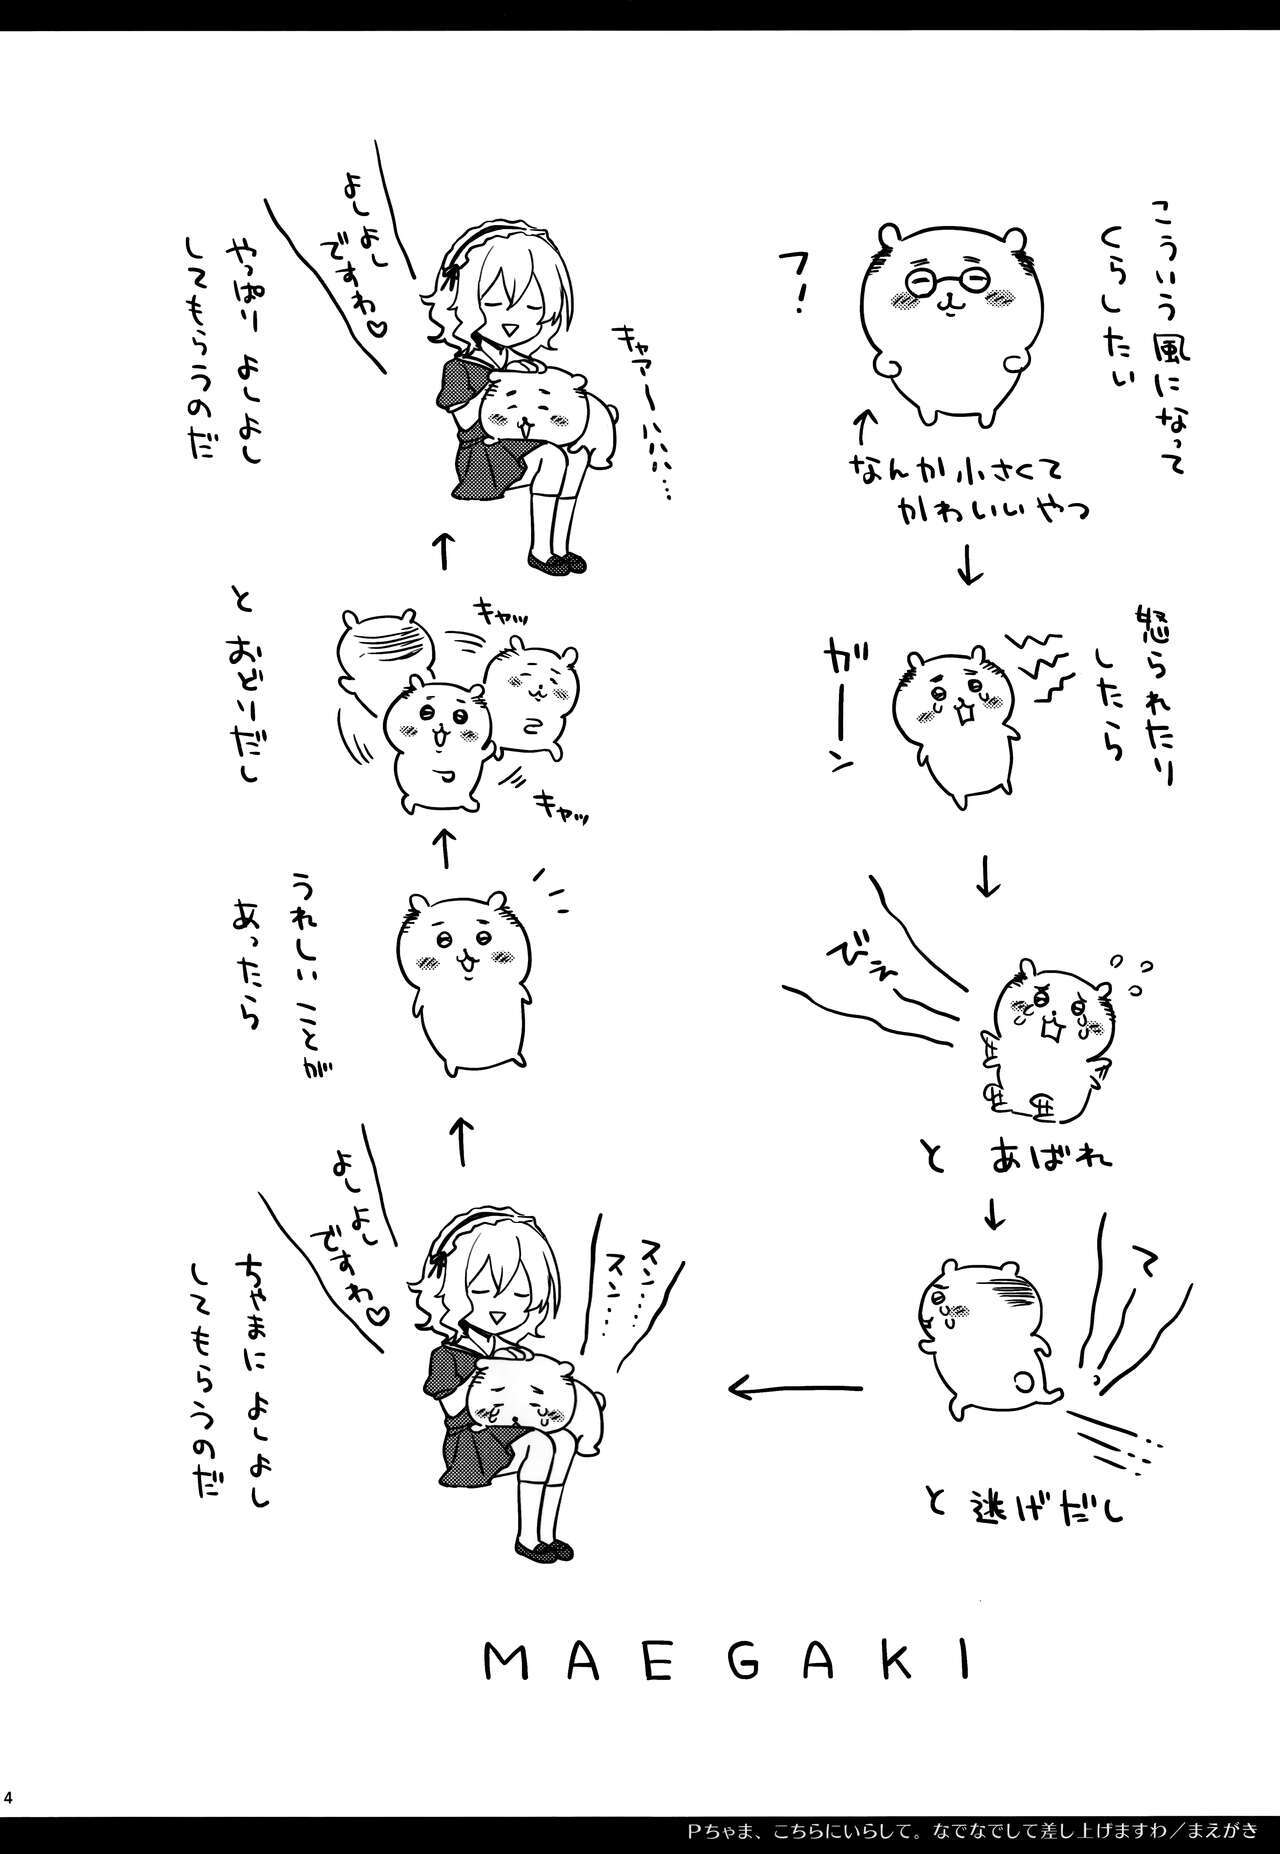 こういう風になって
くらしたい
フ!
なんか小さくて
かわいいやつ
怒られたり
したら
ガーン
びえ
と あばれ
て
と 逃げだし
スン……
スン……
よしよし
ですわ♡
ちゃまに よしよし
してもらうのだ
うれしい ことが
あったら
キャッ
キャッ
と おどりだし
キャアーハハハ…
よしよし
ですわ♡
やっぱり よしよし
してもらうのだ
MAEGAKI
4
Pちゃま、こちらにいらして。なでなでして差し上げますわ／まえがき